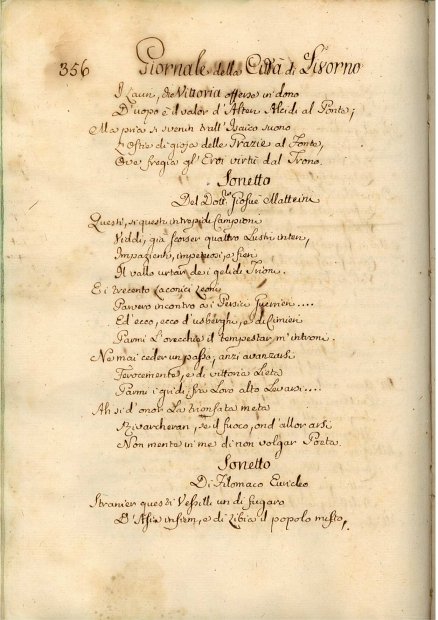 356 Giornale della Città di Livorno
I Laur, che Vittoria offerse in dono
D'uopo è il valor d'Alten Alcidi al Ponte;
Ma pria si sveni trall' suono
L'Ostie di gioja delle Grazie al Fonte,
Ove fregia gl'Eroi virtù dal Trono.
Sonetto
Del Dott. Giosuè Matteini
Questi, si questi intrepidi Campioni
Viddi, già scorser quattro Lustri interi,
Impazienti, impetuosi, e fieri
Il vallo urtar de i gelidi Trioni.
E i trecento Laconici Leoni
Parvero incontro a i Persici Guerrieri....
Ed ecco, ecco d'usberghi, e di Cimieri
Parmi L'orecchie il tempestar m'introni.
Ne mai ceder un passo, anzi avanzarsi
Ferocemente, e di vittoria Lieta
Parmi i gridi frà Loro alto Levarsi....
Ah si d'onor La trionfata meta
Rivarcheran, se il fuoco, ond'allor arsi
Non mente in me di non volgar Poeta.
Sonetto
Di Filomaco Euricleo
Stranier questi Vessilli un dì fugaro
D'Asia infirm, e di Libia il popolo misto,